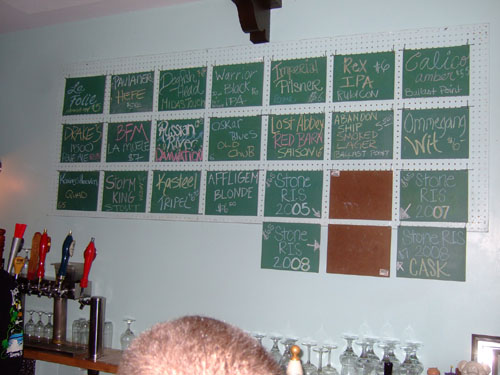 Le
Folie
Paulaner
Hefe
Dogfish
Head
Midas Touch
Warrior
Black
IPA
Imperial
Pilsner
Rex $6
IPA
Rubicon
Calico
amber $5
Ballast Point
Drake's
1500
Pale Ale
BFM
La Meule
$7
Russian
River
Damnation
Oskar
Blues
Old
Chub
Lost Abbey
Red Barn
Saison 6
Abandon
Ship
Smoked
Lager
Ballast Point
Ommegang
Wit $6
Storm
King
Stout
Kasteel
Tripel
Affligem
Blonde
$6
Stone
RIS
2005
Stone RIS
2007
Stone
RIS
2008
Stone RIS
2008
Cask